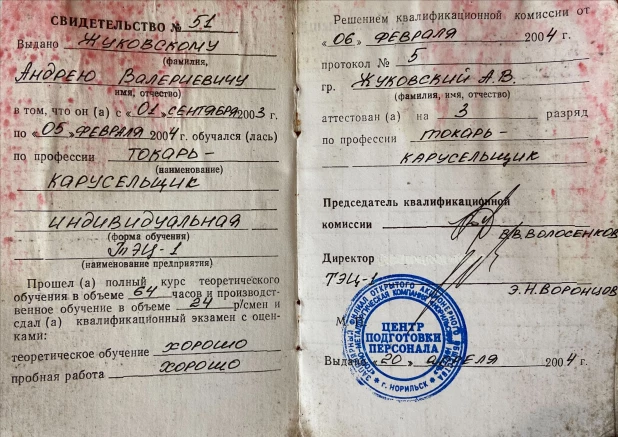 СВИДЕТЕЛЬСТВО № 51
Выдано ЖУКОВСКОМУ
(фамилия,
АНДРЕЮ ВАЛЕРИЕВИЧУ
имя, отчество)
в том, что он (а) с «01» СЕНТЯБРЯ 2003 г.
по «05» ФЕВРАЛЯ 2004 г. обучался (лась)
по профессии ТОКАРЬ-
(наименование)
КАРУСЕЛЬЩИК
ИНДИВИДУАЛЬНАЯ
(форма обучения)
ТЭЦ-1
(наименование предприятия)
Прошел (а) полный курс теоретического
обучения в объеме 64 часов и производст-
венное обучение в объеме 24 р/смен и
сдал (а) квалификационный экзамен с оцен-
ками:
теоретическое обучение ХОРОШО
пробная работа ХОРОШО
Решением квалификационной комиссии от
«06» ФЕВРАЛЯ 2004 г.
протокол № 5
гр. ЖУКОВСКИЙ А.В.
(фамилия, имя, отчество)
аттестован (а) на 3 разряд
по профессии ТОКАРЬ-
КАРУСЕЛЬЩИК
Председатель квалификационной
комиссии В.В. ВОЛОСЕНКОВ
Директор
ТЭЦ-1 Э.Н. ВОРОНЦОВ
М.
ЦЕНТР
ПОДГОТОВКИ
ПЕРСОНАЛА
г. НОРИЛЬСК
Выдано «20» АПРЕЛЯ 2004 г.